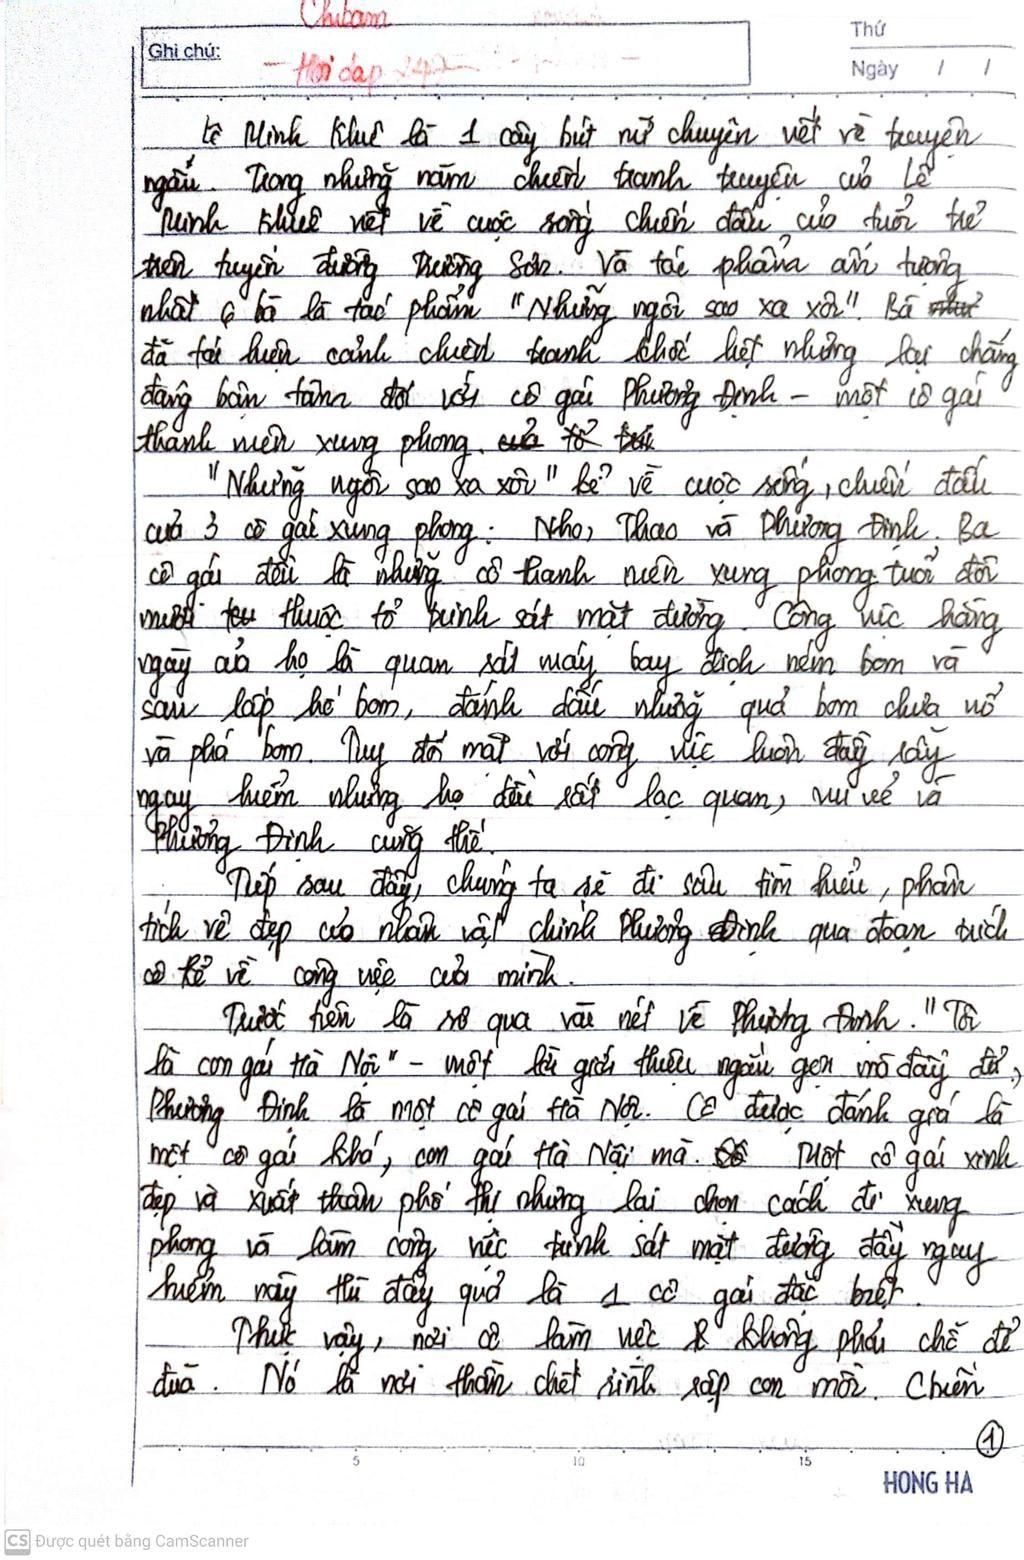 Chibam
Ghi chú:
Thứ
- Hỏi đáp 247 -
Ngày / /
Lê Minh Khuê là 1 cây bút nữ chuyên viết về truyện
ngắn. Trong những năm chiến tranh truyện của Lê
Minh Khuê viết về cuộc sống chiến đấu của tuổi trẻ
trên tuyến đường Trường Sơn. Và tác phẩm ấn tượng
nhất của bà là tác phẩm "Những ngôi sao xa xôi". Bà
đã tái hiện cảnh chiến tranh khốc liệt nhưng lại chẳng
đáng bận tâm đối với cô gái Phương Định - một cô gái
thanh niên xung phong. của tổ
"Những ngôi sao xa xôi" kể về cuộc sống, chiến đấu
của 3 cô gái xung phong: Nho, Thao và Phương Định. Ba
cô gái đều là những cô thanh niên xung phong tuổi đôi
mươi thuộc tổ trinh sát mặt đường. Công việc hằng
ngày của họ là quan sát máy bay địch ném bom và
sau lấp hố bom, đánh dấu những quả bom chưa nổ
và phá bom. Tuy đối mặt với công việc luôn đầy rẫy
nguy hiểm nhưng họ đều rất lạc quan, vui vẻ và
Phương Định cũng thế.
Tiếp sau đây, chúng ta sẽ đi sâu tìm hiểu, phân
tích vẻ đẹp của nhân vật chính Phương Định qua đoạn trích
cô kể về công việc của mình.
Trước tiên là sơ qua vài nét về Phương Định. "Tôi
là con gái Hà Nội" - một lời giới thiệu ngắn gọn mà đầy đủ,
Phương Định là một cô gái Hà Nội. Cô được đánh giá là
một cô gái khá, con gái Hà Nội mà. Một cô gái xinh
đẹp và xuất thân phố thị nhưng lại chọn cách đi xung
phong và làm công việc trinh sát mặt đường đầy nguy
hiểm này thì đấy quả là 1 cô gái đặc biệt.
Thực vậy, nơi cô làm việc k không phải chỗ để
đùa. Nó là nơi thần chết rình rập con mồi. Chiến
1
5 10 15
HONG HA
CS Được quét bằng CamScanner